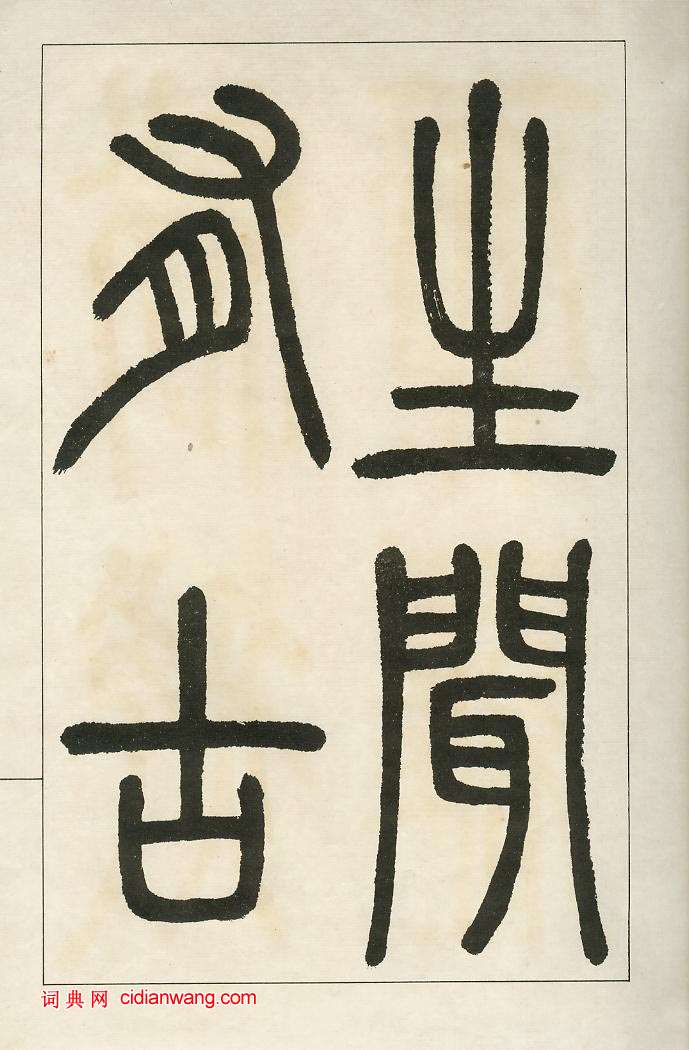 生聞
有古
词典网 cidianwang.com